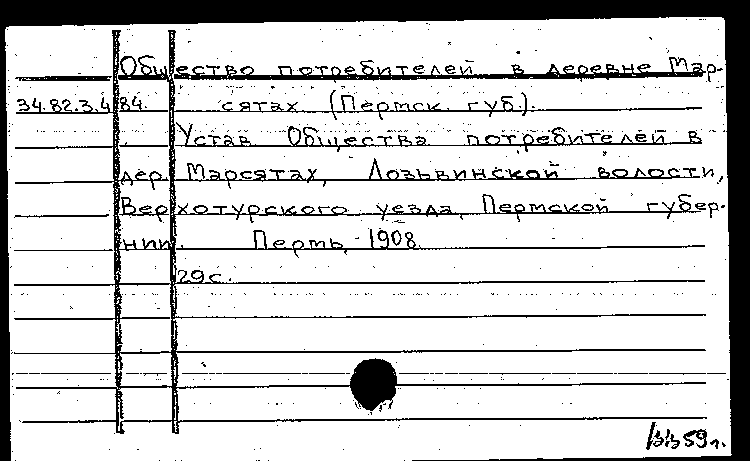 Общество потребителей в деревне Мар-
34.82.3.484. сятах (Пермск. губ.).
Устав Общества потребителей в
дер. Марсятах, Лозьвинской волости,
Верхотурского уезда, Пермской губер-
нии. Пермь, 1908.
29 с.